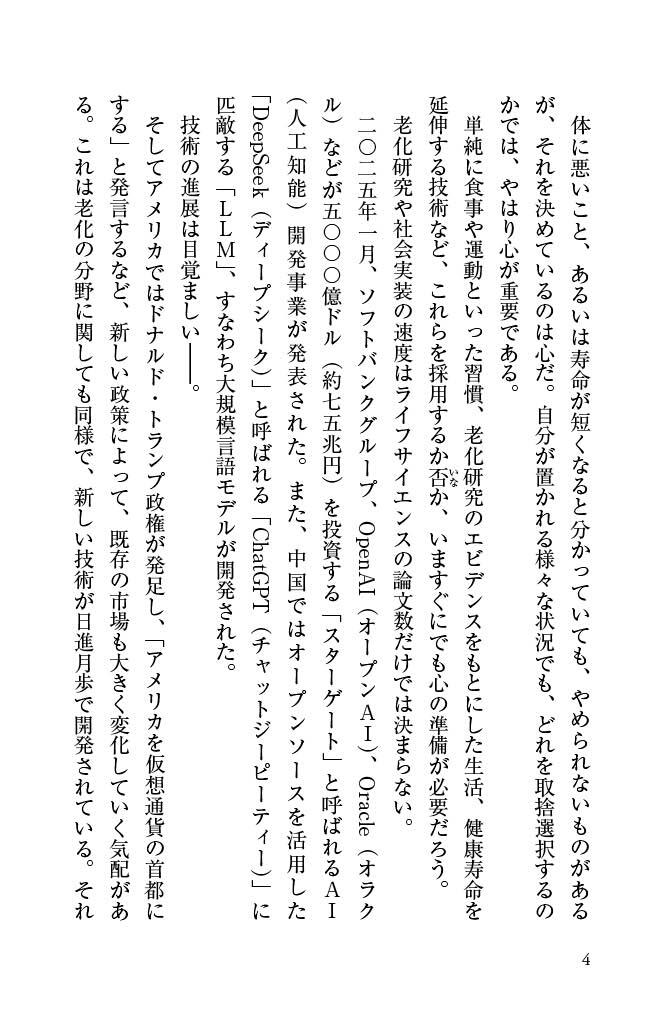 体に悪いこと、あるいは寿命が短くなると分かっていても、やめられないものがある
が、それを決めているのは心だ。自分が置かれる様々な状況でも、どれを取捨選択するの
かでは、やはり心が重要である。
　単純に食事や運動といった習慣、老化研究のエビデンスをもとにした生活、健康寿命を
延伸する技術など、これらを採用するか否いなか、いますぐにでも心の準備が必要だろう。
　老化研究や社会実装の速度はライフサイエンスの論文数だけでは決まらない。
　二〇二五年一月、ソフトバンクグループ、OpenAI（オープンＡＩ）、Oracle（オラク
ル）などが五〇〇〇億ドル（約七五兆円）を投資する「スターゲート」と呼ばれるＡＩ
（人工知能）開発事業が発表された。また、中国ではオープンソースを活用した
「DeepSeek（ディープシーク）」と呼ばれる「ChatGPT（チャットジーピーティー）」に
匹敵する「ＬＬＭ」、すなわち大規模言語モデルが開発された。
　技術の進展は目覚ましい――。
　そしてアメリカではドナルド・トランプ政権が発足し、「アメリカを仮想通貨の首都に
する」と発言するなど、新しい政策によって、既存の市場も大きく変化していく気配があ
る。これは老化の分野に関しても同様で、新しい技術が日進月歩で開発されている。それ
4